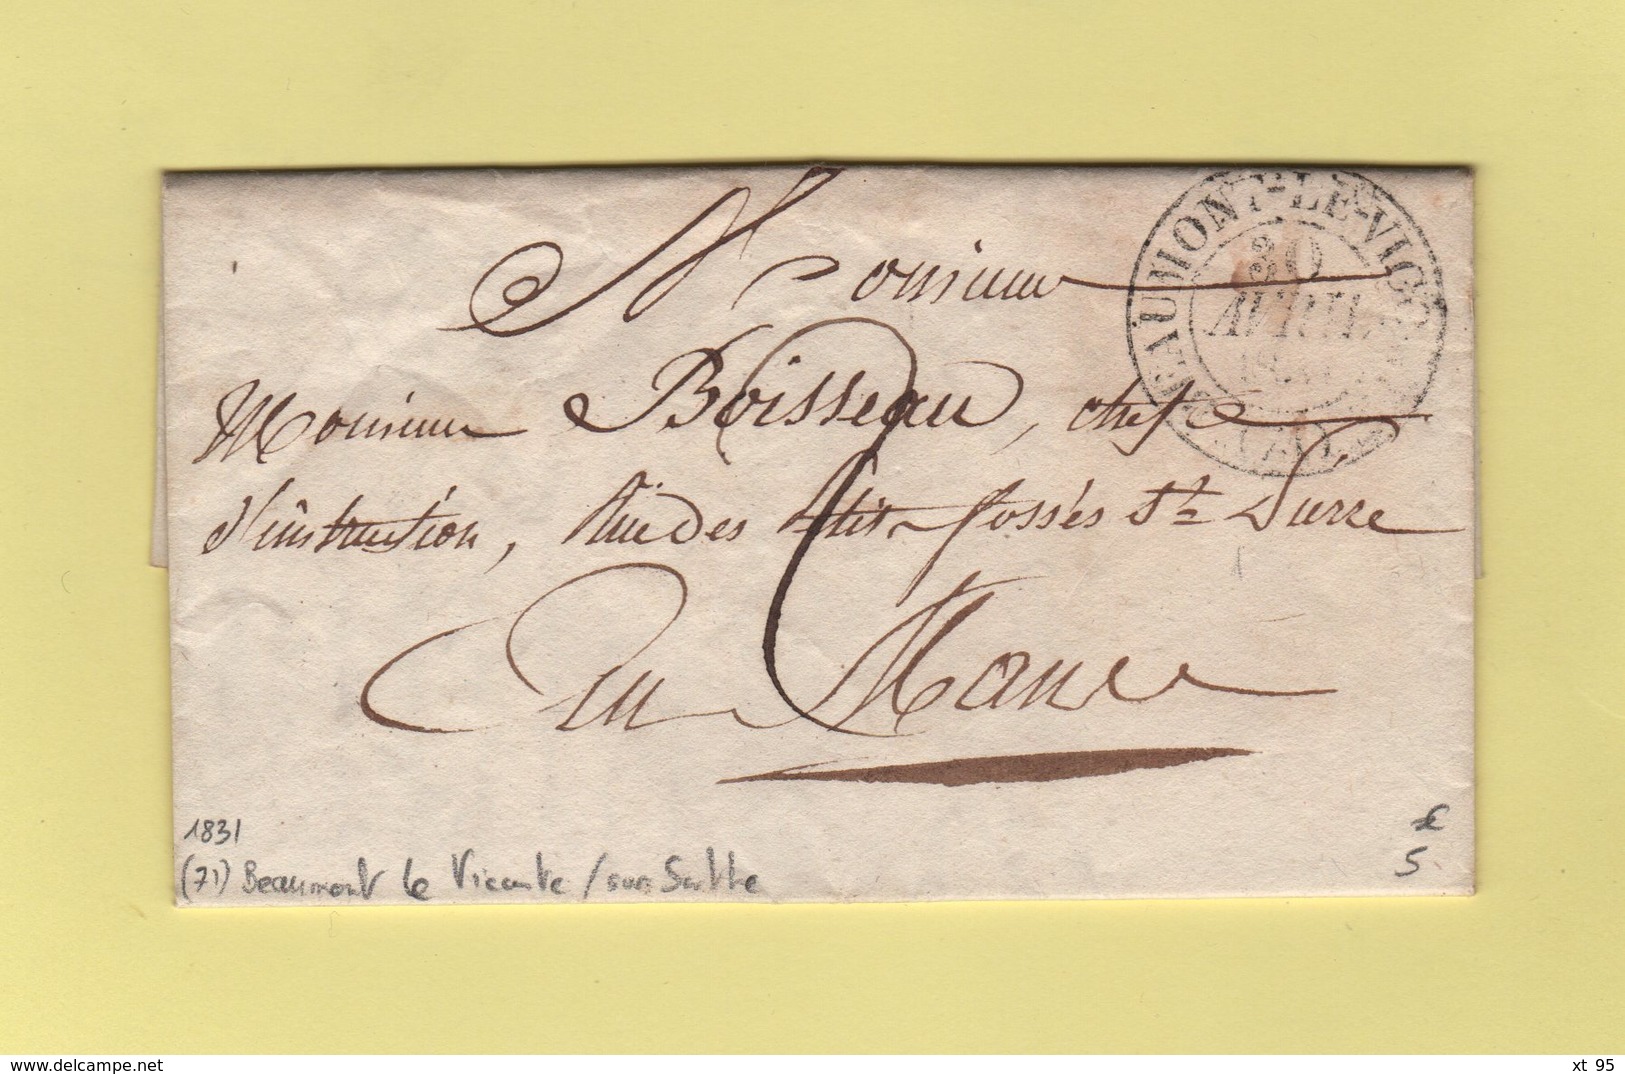 Monsieur
BEAUMONT-LE-VIC
30
AVRIL
Monsieur Boisseau, chef
d'instruction, Rue des Petits fossés St Pierre
Au Mans
1831
(71) Beaumont le Vicomte / sur Sarthe
€
5
xt 95
www.delcampe.net